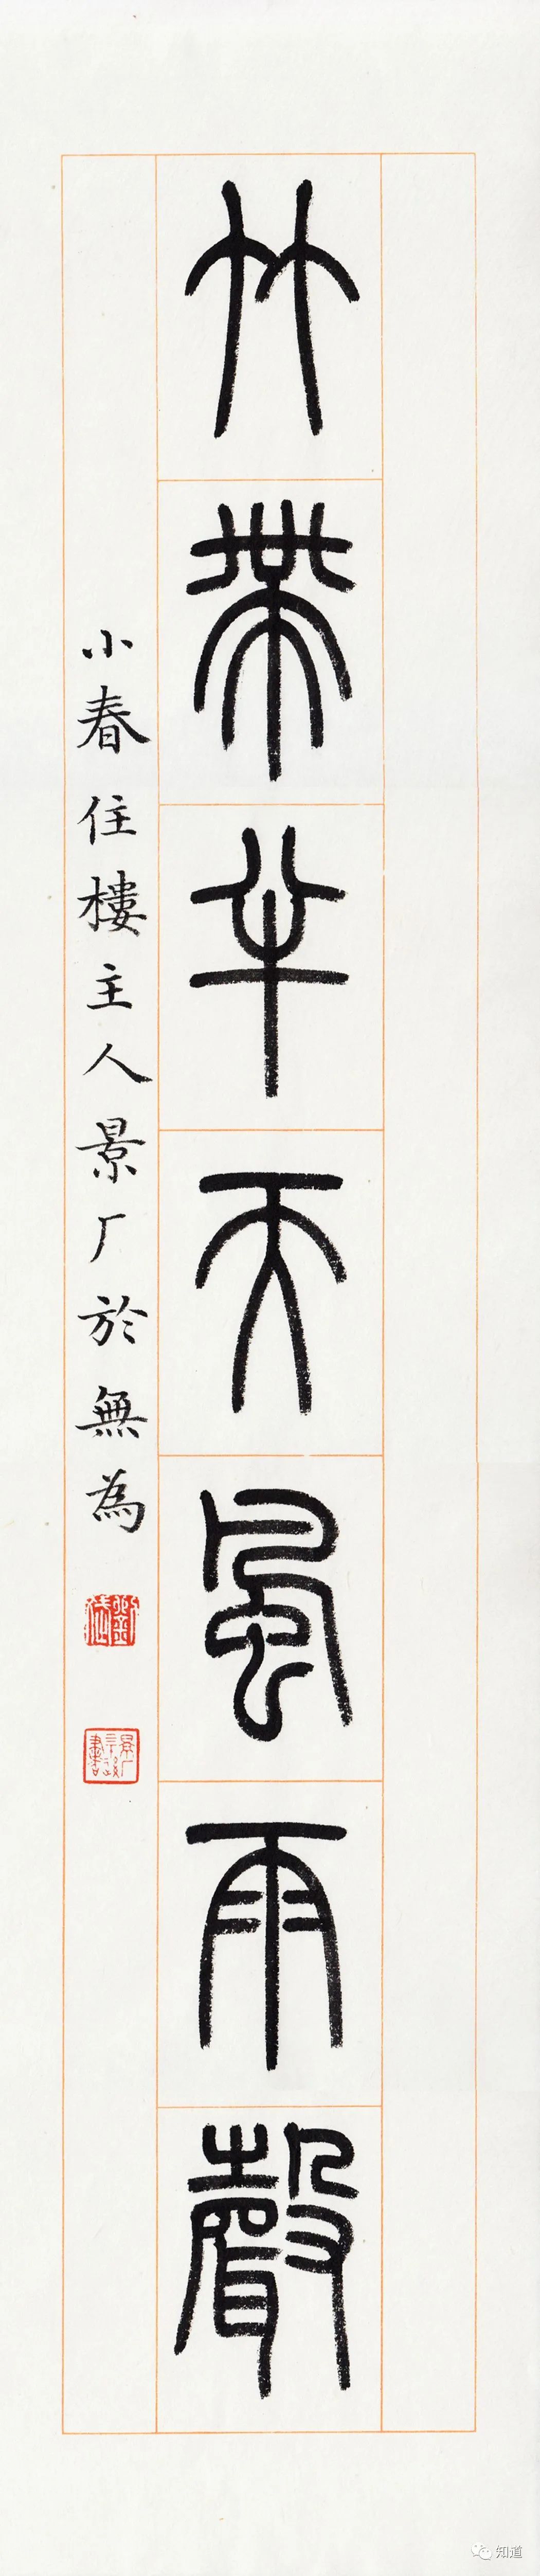 竹帶半天風雨聲
小春住樓主人景厂於無為
知道